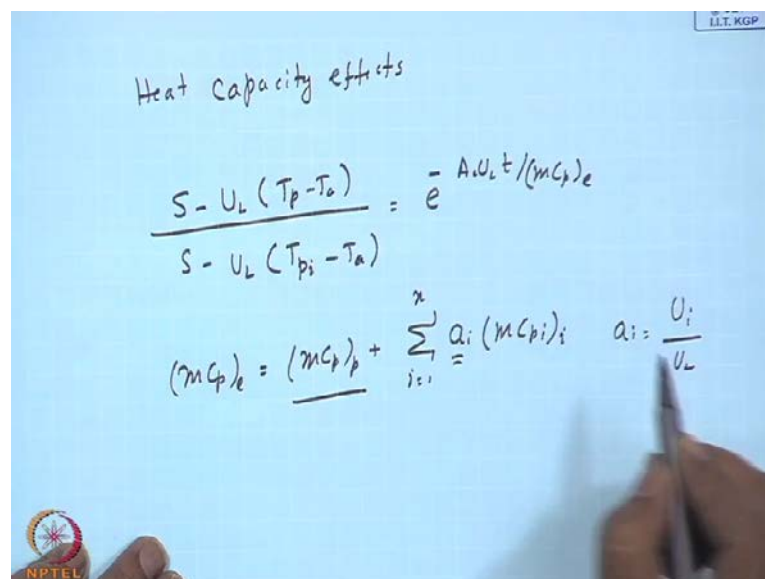 I.I.T. KGP
Heat capacity effects
S - U_L (T_p - T_a) / S - U_L (T_pi - T_a) = e^{- A_c U_L t / (mC_p)_e}
(mC_p)_e = (mC_p)_p + \sum_{i=1}^{n} a_i (mC_pi)_i   a_i = U_i / U_L
NPTEL